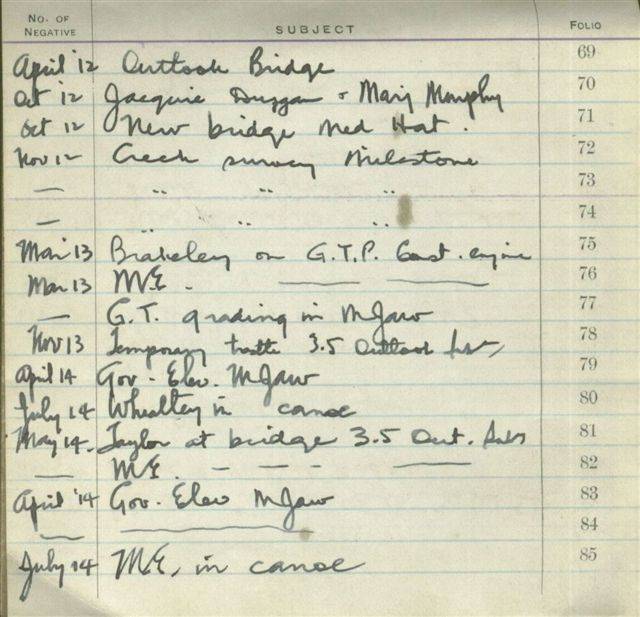 No. of Negative SUBJECT FOLIO
April '12 Outlook Bridge 69
Oct 12 Jacquie Duggan & Mary Murphy 70
Oct 12 New bridge Med Hat. 71
Nov 12 Creek survey Milestone 72
— " " " 73
— " " " 74
Mar 13 Brakeley on G.T.P. Const. engine 75
Mar 13 ME. — — 76
— G.T. grading in MJaw 77
Nov 13 Temporary trestle 3.5 Outlook Sub, 78
April 14 Gov. Elev. MJaw 79
July 14 Whealtey in canoe 80
May 14. Taylor at bridge 3.5 Out. Sub 81
— ME. — — - — 82
April '14 Gov. Elev MJaw 83
— — 84
July 14 ME, in canoe 85